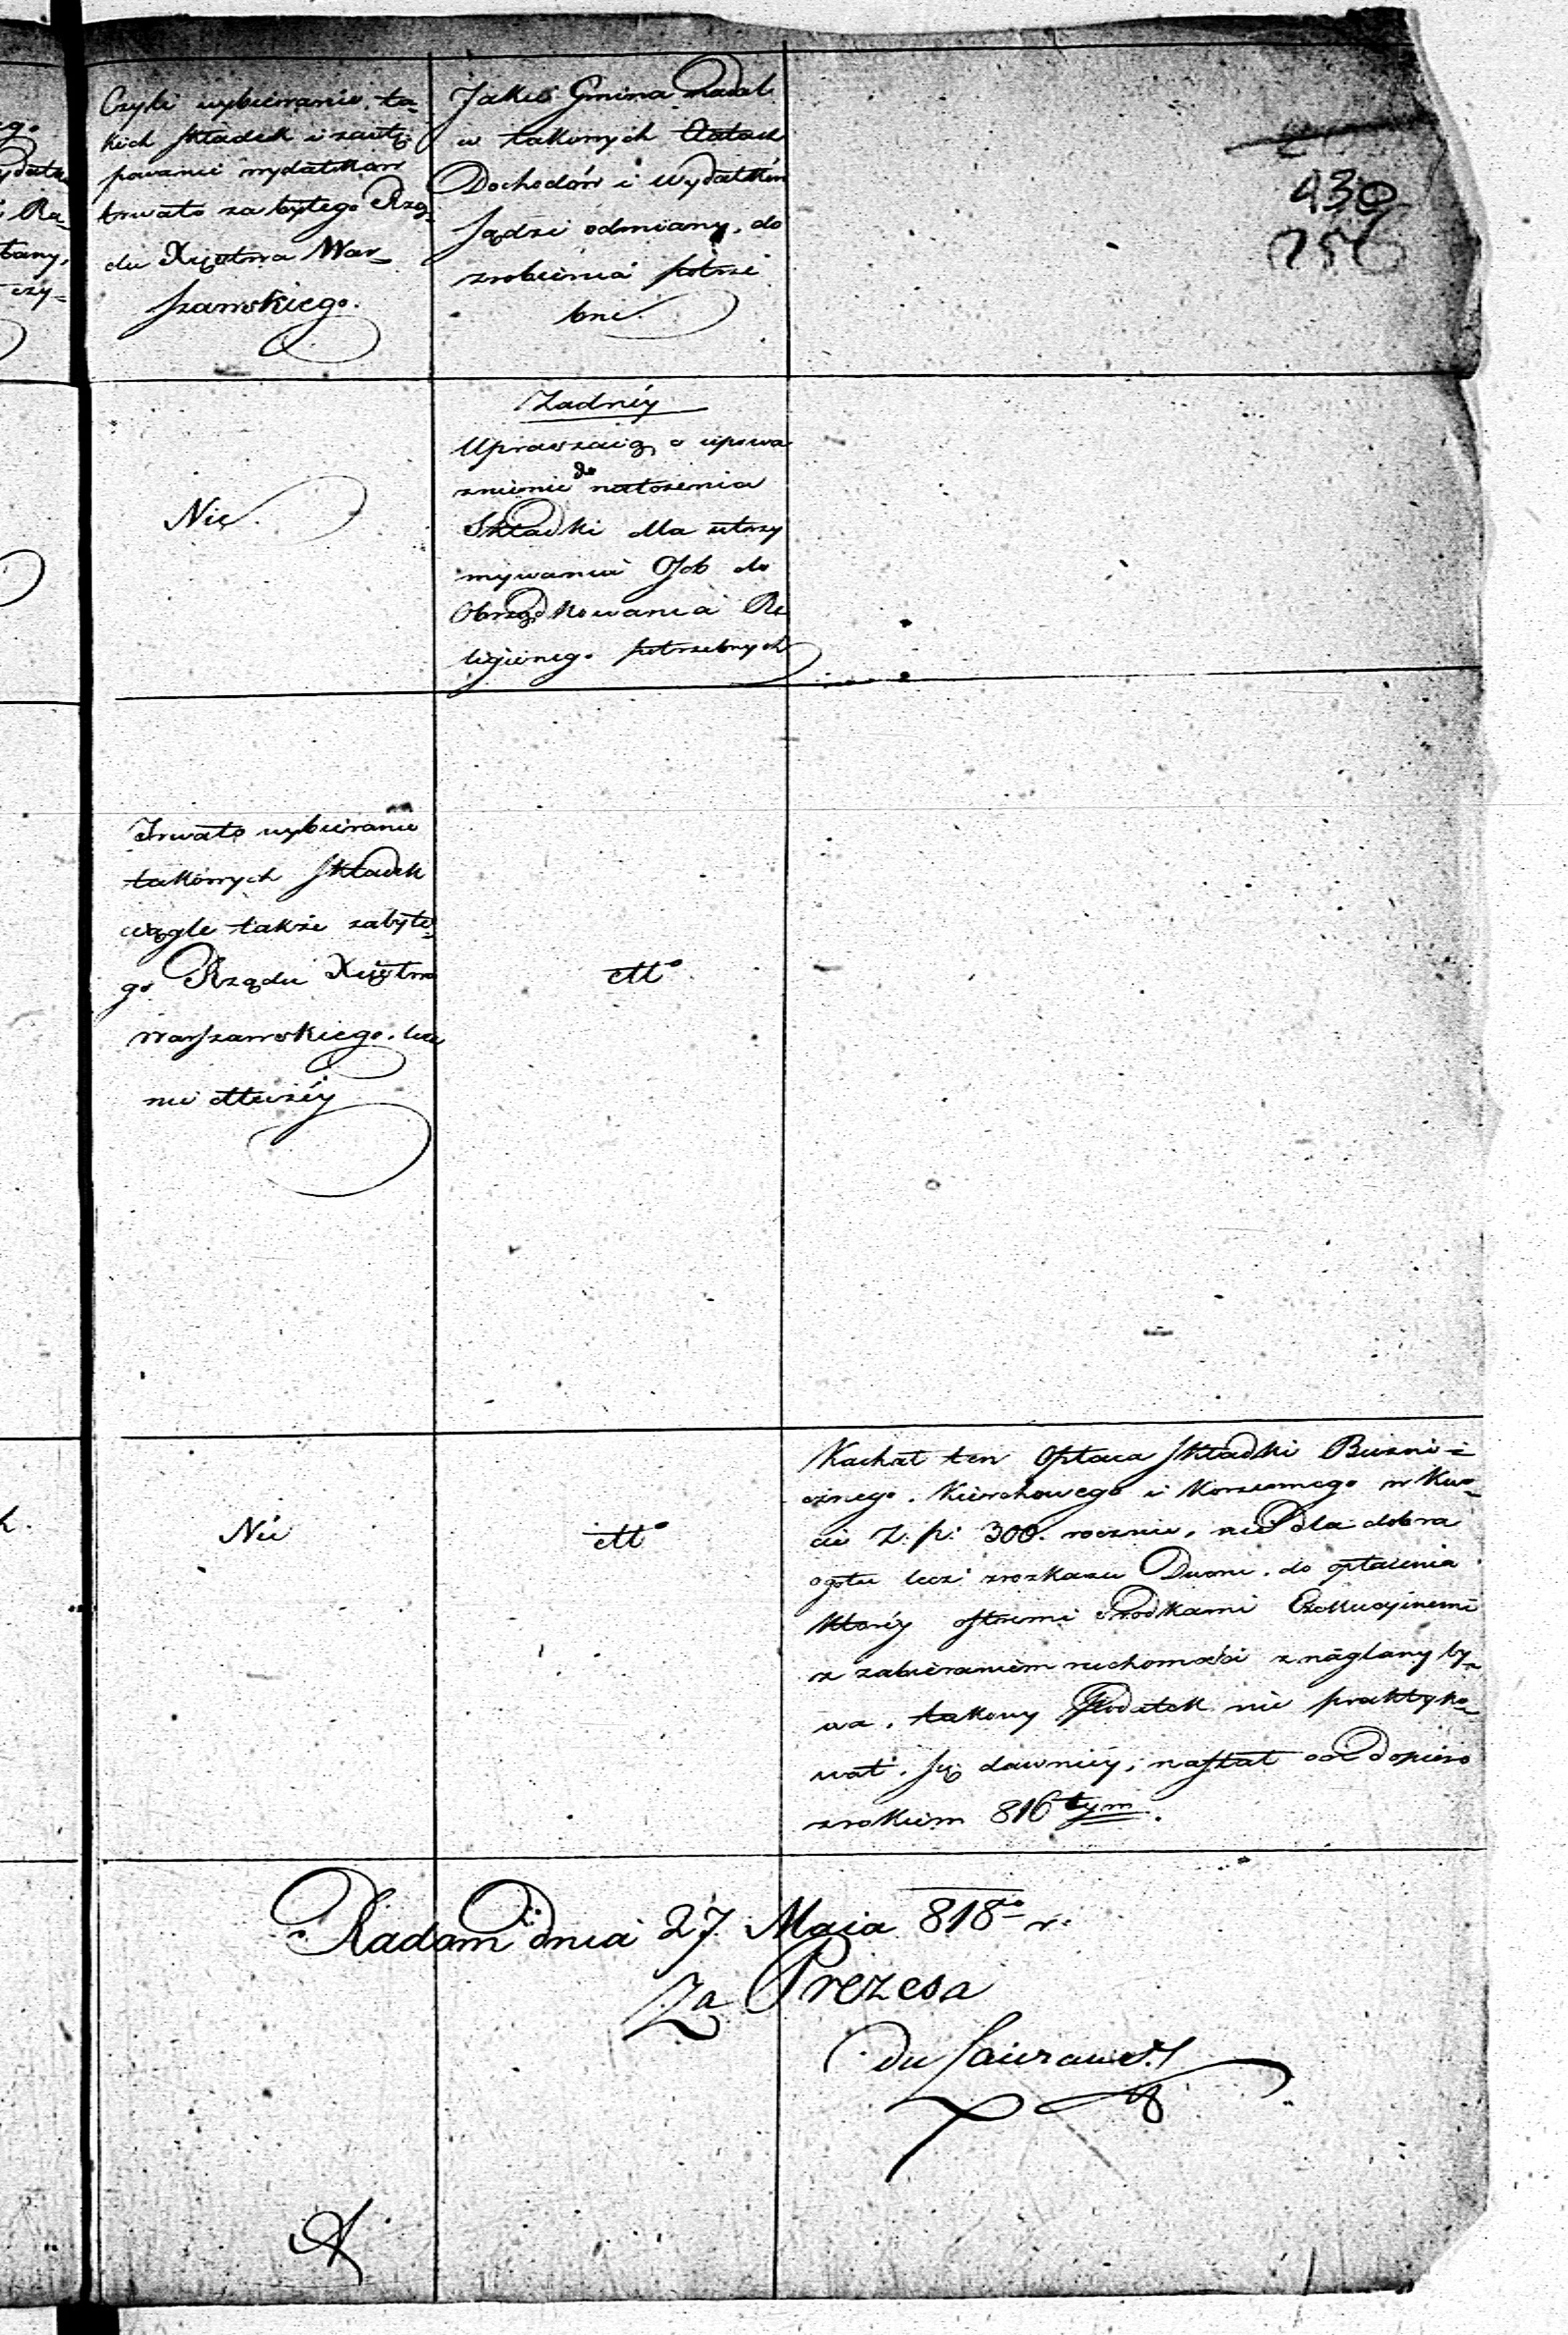 430
256
Czyli wybieranie ta-
kich składek i zastę-
powanie wydatków
trwało za byłego Rzą-
du Xięstwa War-
szawskiego.
Jakiś Gmina nadal
w takowych
Dochodów i Wydatków
sądzi odmiany, do
zrobienia potrze
bne.
Nie.
Żadnéy
Upraszaią o upowa
żnienie do nałożenia
Składki dla utrzy
mywania Osob do
Obrządkowania Re
ligijnego potrzebnych
Trwało wybieranie
takowych Składek
ciągle także za byłe-
go Rządu Xięstwa
Warszawskiego. lecz
nie dłużéy
dtto
Nie
dtto
Kachał ten Opłaca Składki Bużni-
cznego, Kierchowego i Korzennego w Kwo-
cie Z: p: 300. rocznie, nie dla dobra
ogółu lecz z rozkazu Dworu, do opłacenia
któréy ostremi środkami Exekucyinemi
z zabieraniem ruchomości znaglany by-
wa. takowy Podatek nie praktyko-
wał się dawniéy, nastał on dopiero
z rokiem 816tym.
Radom dnia 27 Maia 818go r:
Za Prezesa